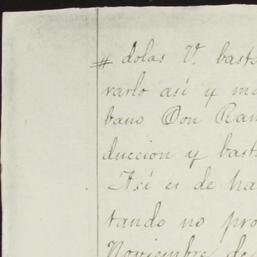 # dolas V. bast
varlo así y m
bano Don Ram
duccion y bast
Así es de ha
tando no pro
Noviembre de